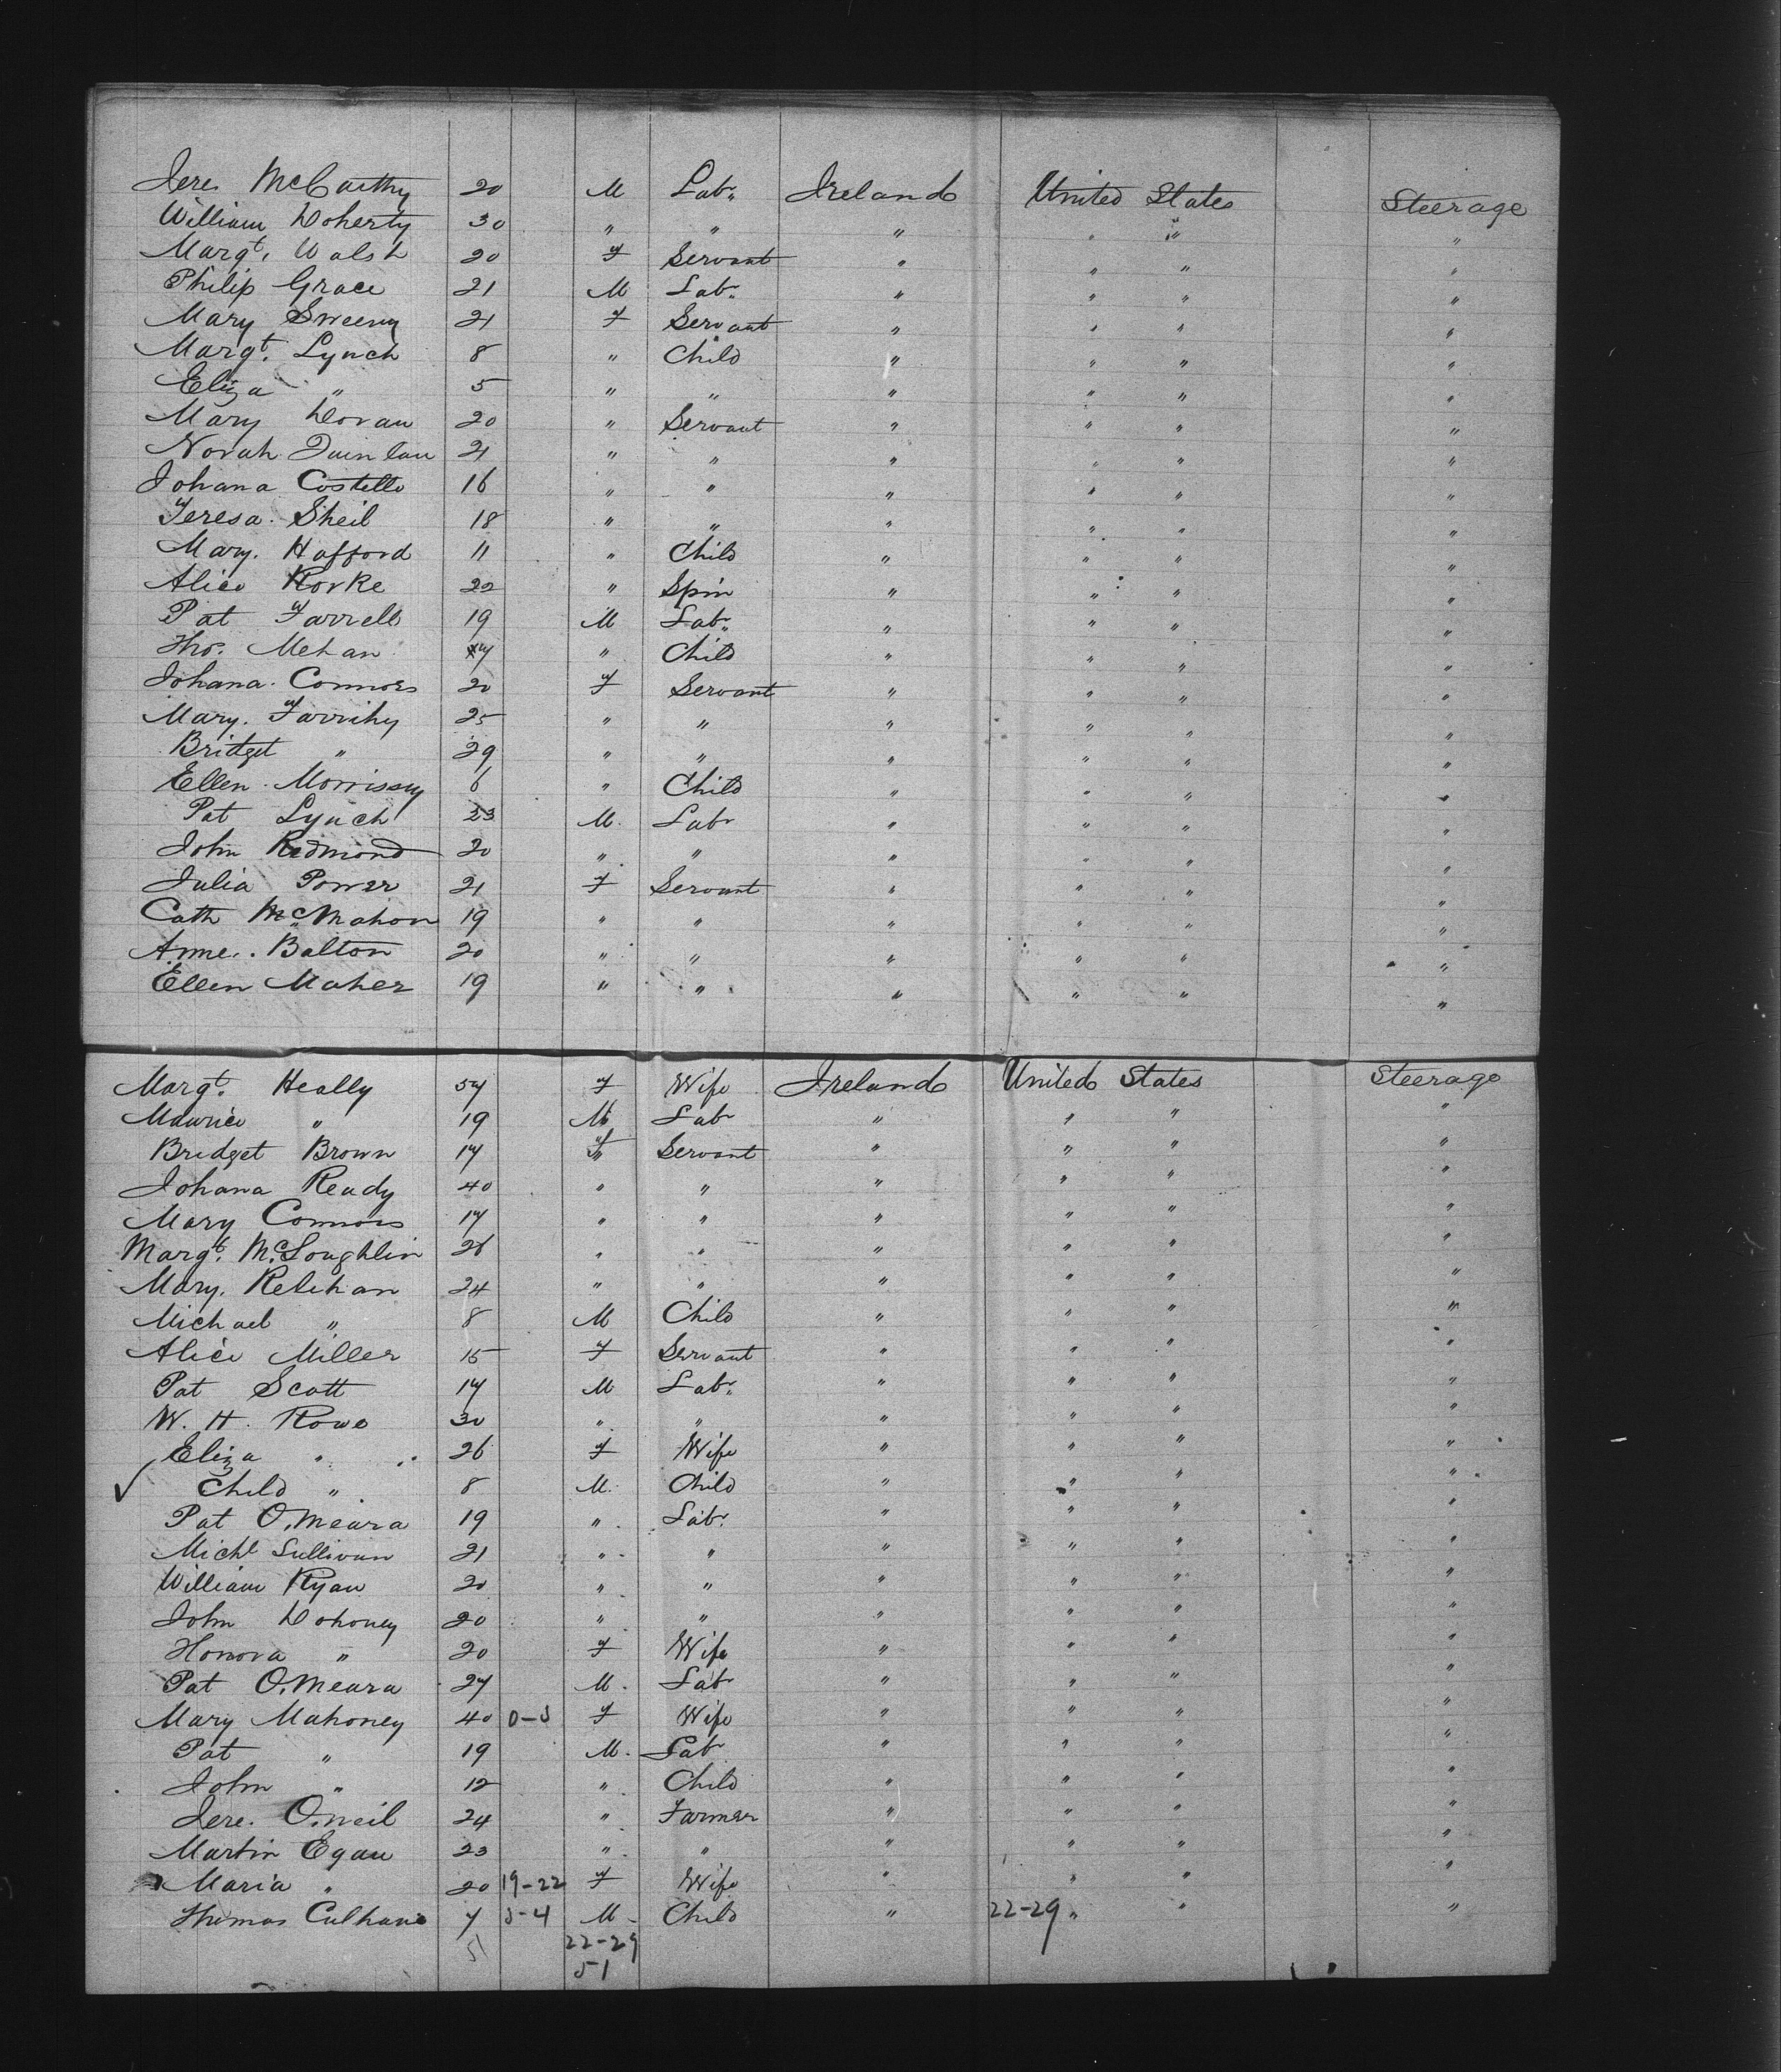 Jere. McCarthy 20 M Lab. Ireland United States Steerage
William Doherty 30 " " " " " "
Margt. Walsh 20 F Servant " " " "
Philip Grace 21 M Lab. " " " "
Mary Sweeny 21 F Servant " " " "
Margt. Lynch 8 " Child " " " "
Eliza " 5 " " " " " "
Mary Doran 20 " Servant " " " "
Norah Quinlan 21 " " " " " "
Johana Costello 16 " " " " " "
Teresa Sheil 18 " " " " " "
Mary. Hafford 11 " Child " " " "
Alice Rorke 22 " Spin " " " "
Pat Farrell 19 M Lab. " " " "
Thos. Mehan 7 " Child " " " "
Johana Connors 20 F Servant " " " "
Mary. Farrihy 25 " " " " " "
Bridget " 29 " " " " " "
Ellen Morrissy 6 " Child " " " "
Pat Lynch 23 M. Labr " " " "
John Redmond 20 " " " " " "
Julia Power 21 F Servant " " " "
Cath McMahon 19 " " " " " "
Anne. Balton 20 " " " " " "
Ellen Maher 19 " " " " " "
Margt. Heally 57 F Wife Ireland United States Steerage
Maurice " 19 M Lab " " " "
Bridget Brown 17 F Servant " " " "
Johana Ready 40 " " " " " "
Mary Connors 17 " " " " " "
Margt. McLoughlin 26 " " " " " "
Mary. Relihan 24 " " " " " "
Michael " 8 M Child " " " "
Alice Miller 15 F Servant " " " "
Pat Scott 17 M Lab. " " " "
W. H. Rowe 30 " " " " " "
Eliza " 26 F Wife " " " "
✓ Child " 8 M. Child " " " "
Pat O'Meara 19 " Lab. " " " "
Michl Sullivan 21 " " " " " "
William Ryan 20 " " " " " "
John Dohoney 20 " " " " " "
Honora " 20 F Wife " " " "
Pat O'Meara 27 M. Lab " " " "
Mary Mahoney 40 F Wife " " " "
Pat " 19 M. Lab " " " "
John " 12 " Child " " " "
Jere. O'neil 24 " Farmer " " " "
Martin Egan 23 " " " " " "
Maria " 20 19-22 F Wife " " " "
Thomas Culhane 7 M Child " 22-29 " " "
51 22-29
51